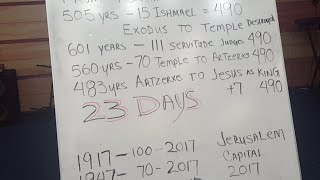 505 YRS - 15 ISHMAEL = 490
EXODUS TO TEMPLE
601 YEARS - 111 SERVITUDE JUDGES 490
560 YRS - 70 TEMPLE TO ARTZERXS 490
483 YRS ARTZERXE TO JESUS AS KING
+7 490
23 DAYS
1917 - 100 - 2017
JERUSALEM
CAPITAL
2017
1947 - 70 - 2017